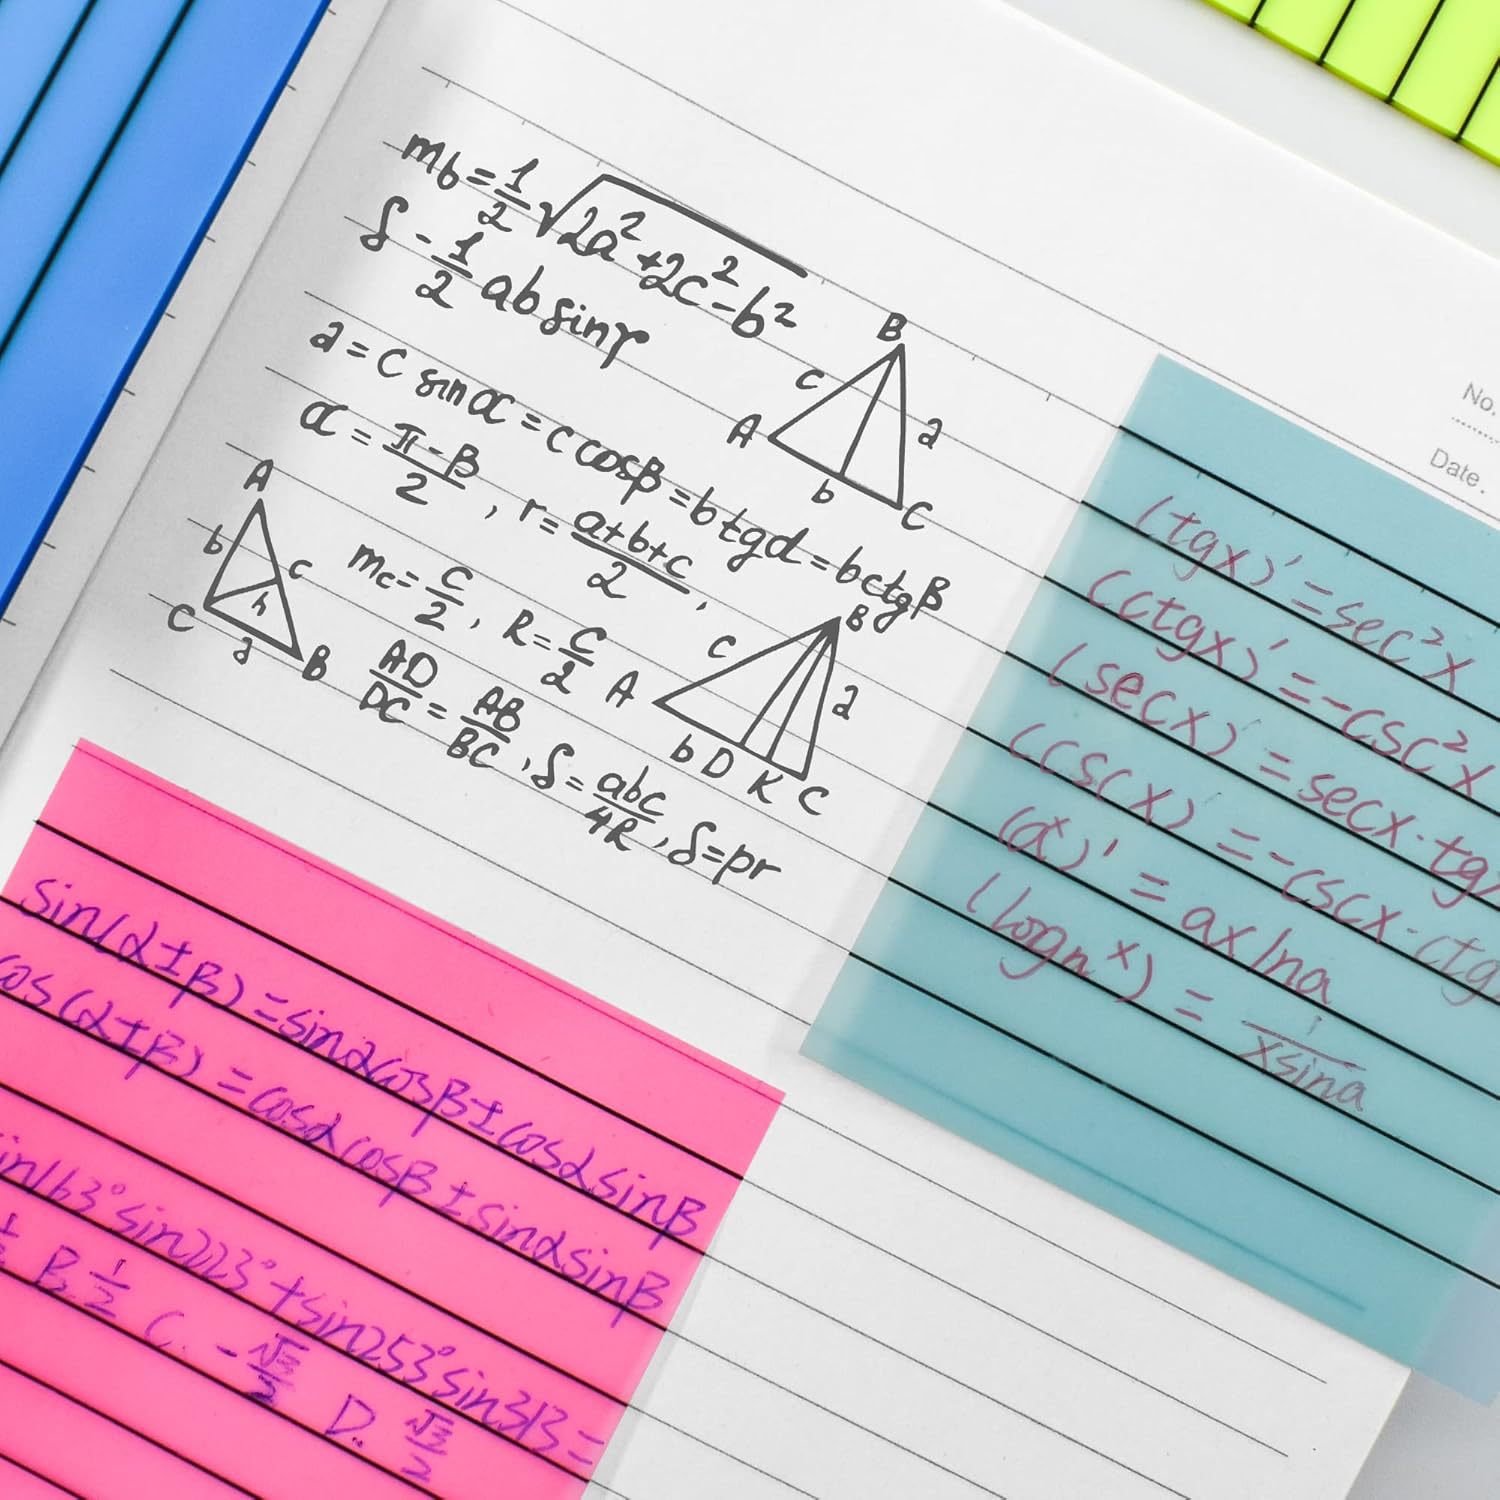 m_b = 1/2 √(2a² + 2c² - b²)
S - 1/2 ab sin γ
a = c sin α = c cos β = b tg d = b ctg β
α = (π - β)/2 , r = (a+b+c)/2 ,
m_c = c/2 , R = c/2
AD/DC = AB/BC , S = abc/4R , S = pr
B
c
A
a
b
C
A
b
c
C
h
a
B
B
c
A
a
b D K C
No.
Date.
(tgx)' = sec²x
(ctgx)' = -csc²x
(secx)' = secx·tg
(cscx)' = -cscx·ctg
(aˣ)' = ax lna
(logₙˣ) = 1/xsina
sin(α±β) = sinαcosβ ± cosαsinβ
cos(α±β) = cosαcosβ ± sinαsinβ
in163° sin223° + sin253° sin313 =
B 1/2 C. -√3/2 D. √3/2